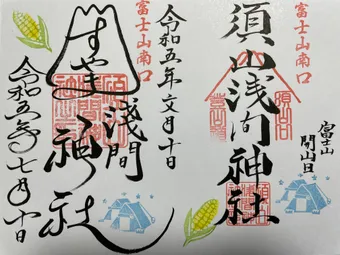 富士山南口
須山浅間神社
富士山
開山日
令和五年文月十日
富士山南口
すやま
浅間
神社
令和五年七月十日